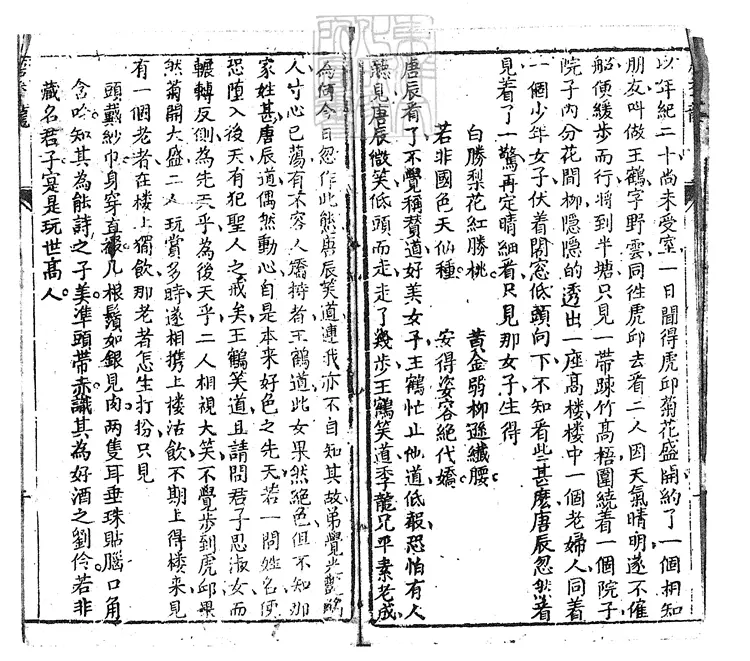 以年紀二十尚未受室一日聞得虎邱菊花盛開約了一個相知
朋友叫做王鶴字野雲同徃虎邱去看二人因天氣晴明遂不催
船便緩步而行將到半塘只見一帶踈竹髙梧圍繞着一個院子
院子內分花間柳隱隱的透出一座髙樓樓中一個老婦人同着
一個少年女子伏着閣窓低頭向下不知看些甚麽唐辰忽然看
見着了一驚再定睛細看只見那女子生得
白勝梨花紅勝桃 黄金弱柳遜纎腰
若非國色天仙種 安得姿容絕代嬌
唐辰看了不覺稱賛道好美女子王鶴忙止他道低報恐怕有人
聽見唐辰微笑低頭而走走了幾步王鶴笑道季龍兄平素老成
為何今日忽作此態唐辰笑道連我亦不自知其故弟覺光艷
人寸心已蕩有不容人矯持者王鶴道此女果然絕色但不知那
家姓甚唐辰道偶然動心自是本来好色之先天若一問姓名便
恐墮入後天有犯聖人之戒矣王鶴笑道且請問君子思淑女而
輾轉反側為先天乎為後天乎二人相視大笑不覺步到虎邱果
然菊開大盛二人玩賞多時遂相携上楼沽飲不期上得楼来見
有一個老者在楼上獨飲那老者怎生打扮只見
頭戴紗巾身穿直裰几根鬚如銀見肉兩隻耳垂珠貼腦口角
含吟知其為能詩之子美準頭帶赤識其為好酒之劉伶若非
藏名君子寔是玩世髙人